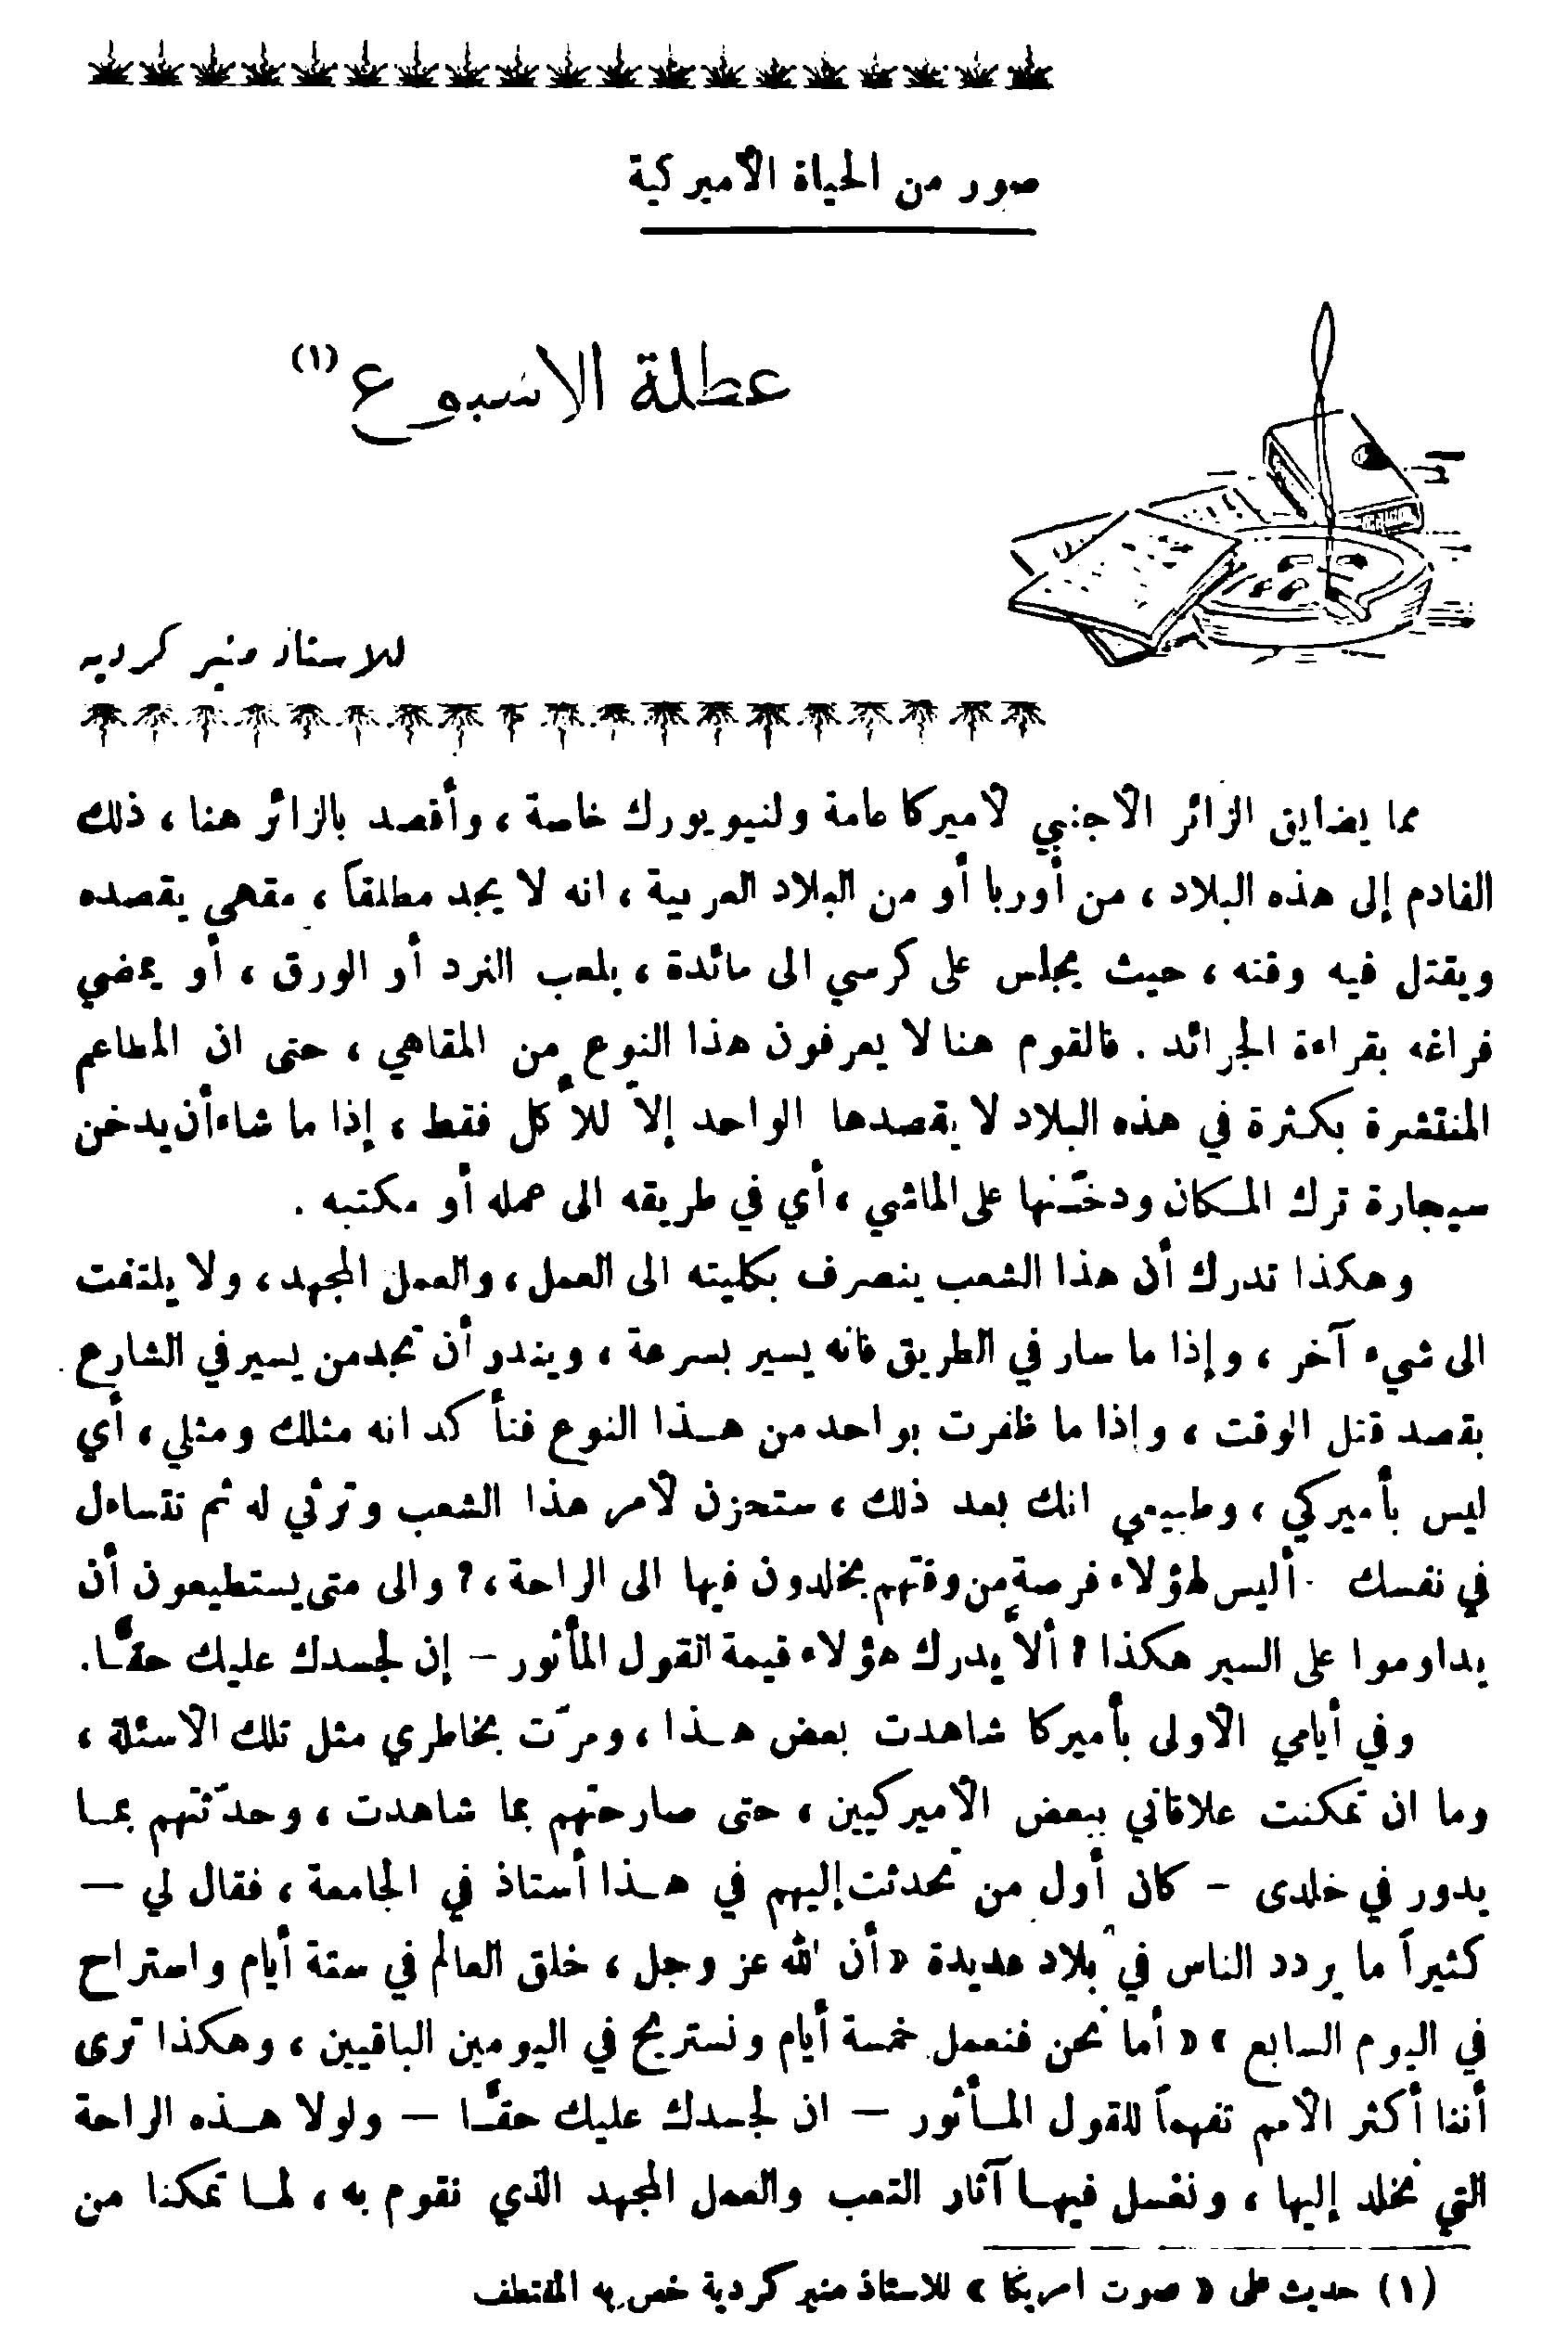 صور من الحياة الأميركية
عطلة الاسبوع (١)
للاستاذ منير كرديه
مما يضايق الزائر الأجنبي لأميركا عامة ولنيويورك خاصة ، وأقصد بالزائر هنا ، ذلك
القادم إلى هذه البلاد ، من أوربا أو من البلاد العربية ، انه لا يجد مطلقاً ، مقهى يقصده
ويقتل فيه وقته ، حيث يجلس على كرسي الى مائدة ، يلعب النرد أو الورق ، أو يمضي
فراغه بقراءة الجرائد . فالقوم هنا لا يعرفون هذا النوع من المقاهي ، حتى ان المطاعم
المنتشرة بكثرة في هذه البلاد لا يقصدها الواحد إلاّ للأكل فقط ، إذا ما شاء أن يدخن
سيجارة ترك المكان ودخّنها على الماشي ، أي في طريقه الى عمله أو مكتبه .
وهكذا تدرك أن هذا الشعب ينصرف بكليته الى العمل ، والعمل المجهد ، ولا يلتفت
الى شيء آخر ، وإذا ما سار في الطريق فانه يسير بسرعة ، ويندر أن تجد من يسير في الشارع
بقصد قتل الوقت ، وإذا ما ظفرت بواحد من هذا النوع فتأكد انه مثلك ومثلي ، أي
ليس بأميركي ، وطبيعي انك بعد ذلك ، ستحزن لأمر هذا الشعب وترثي له ثم تتساءل
في نفسك . أليس لهؤلاء فرصة من وقتهم يخلدون فيها الى الراحة ، ؟ والى متى يستطيعون أن
يداوموا على السير هكذا ؟ ألاّ يدرك هؤلاء قيمة القول المأثور – إن لجسدك عليك حقّا .
وفي أيامي الأولى بأميركا شاهدت بعض هذا ، ومرّت بخاطري مثل تلك الاسئلة ،
وما ان تمكنت علاقاتي ببعض الأميركيين ، حتى صارحتهم بما شاهدت ، وحدّثتهم بما
يدور في خلدى – كان أول من تحدثت إليهم في هذا أستاذ في الجامعة ، فقال لي –
كثيراً ما يردد الناس في بلاد عديدة « أن الله عز وجل ، خلق العالم في ستة أيام واستراح
في اليوم السابع » « أما نحن فنعمل خمسة أيام ونستريح في اليومين الباقيين ، وهكذا ترى
أننا أكثر الأمم تفهماً للقول المأثور – ان لجسدك عليك حقّا – ولولا هذه الراحة
التي نخلد إليها ، ونغسل فيها آثار التعب والعمل المجهد الذي نقوم به ، لما تمكنا من
(١) حديث على « صوت امريكا » للاستاذ منير كردية خص به المقتطف